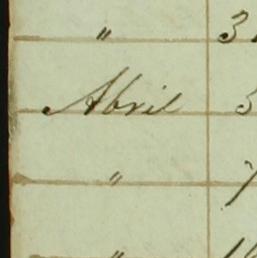 " 3
Abril 5
" 7
" 1